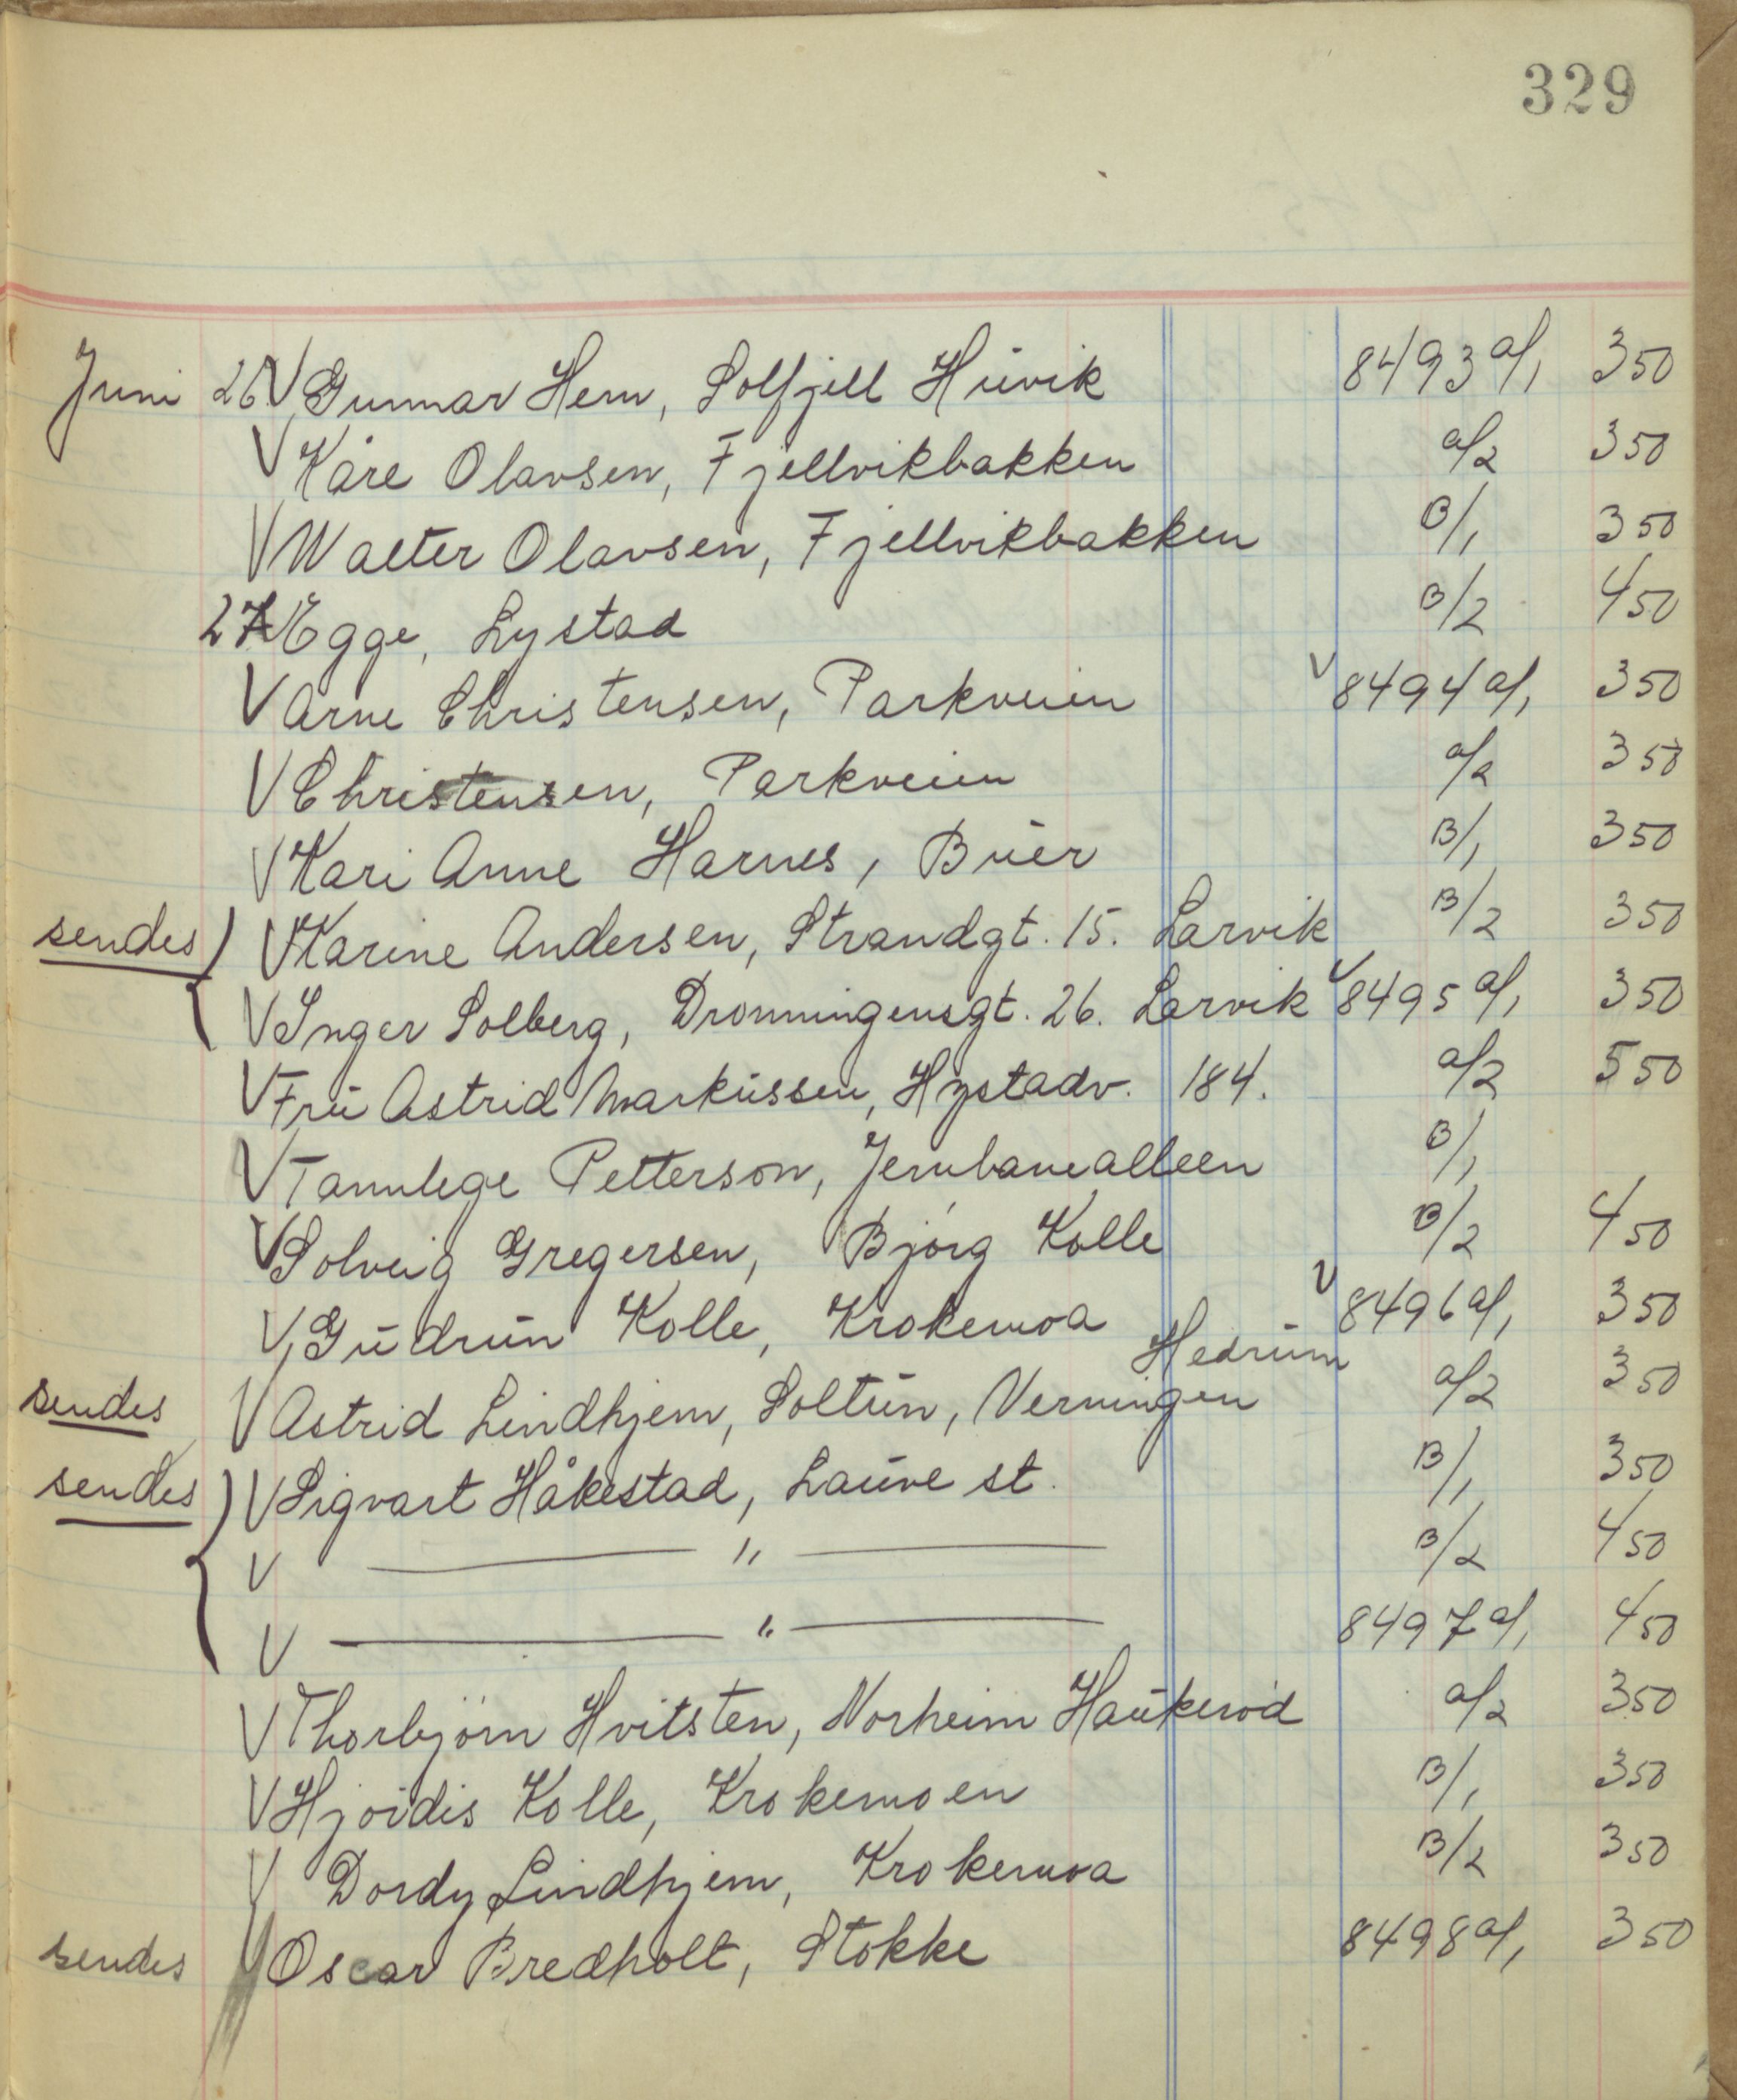 329
Juni 26 V Gunnar Hem, Solfjell Huvik 8493 a/1 350
V Kåre Olavsen, Fjellvikbakken a/2 350
V Walter Olavsen, Fjellvikbakken B/1 350
27 V Egge, Lystad B/2 450
V Arne Christensen, Parkveien V 8494 a/1 350
V Christensen, Parkveien a/2 350
V Kari Anne Harnes, Buer B/1 350
sendes V Karine Andersen, Strandgt. 15. Larvik B/2 350
V Inger Solberg, Dronningensgt. 26. Larvik V 8495 a/1 350
V Fru Astrid Markussen, Hystadv. 184. a/2 550
V Tannlege Petterson, Jernbanealleen B/1
V Solveig Gregersen, Bjørg Kolle B/2 450
V Gudrun Kolle, Krokemoa V 8496 a/1 350
Hedrum
sendes V Astrid Lindhjem, Soltun, Verningen a/2 350
sendes V Sigvart Håkestad, Lauve st. B/1 350
V — " — B/2 450
V — " — 8497 a/1 450
V Thorbjørn Hvitsten, Norheim Haukerød a/2 350
V Hjørdis Kolle, Krokemoen B/1 350
V Dordy Lindhjem, Krokemoa B/2 350
sendes V Oscar Bredholt, Stokke 8498 a/1 350